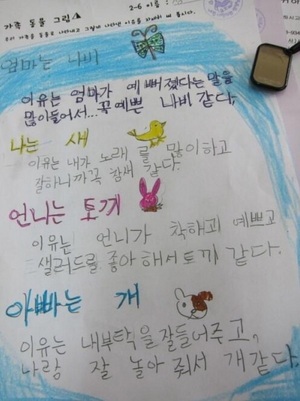 가족 동물 그림
2-6 이름:
엄마는 나비
이유는 엄마가 예뻐졌다는 말을
많이들어서... 꼭예쁜 나비 같다.
나는 새
이유는 내가 노래를 많이하고
잘하니까꼭 같다.
언니는 토끼
이유는 언니가 착해고 예쁘고
샐러드를 좋아해서토끼 같다.
아빠는 개
이유는 내부탁을잘들어주고,
나랑 잘 놀아줘서 개같다.